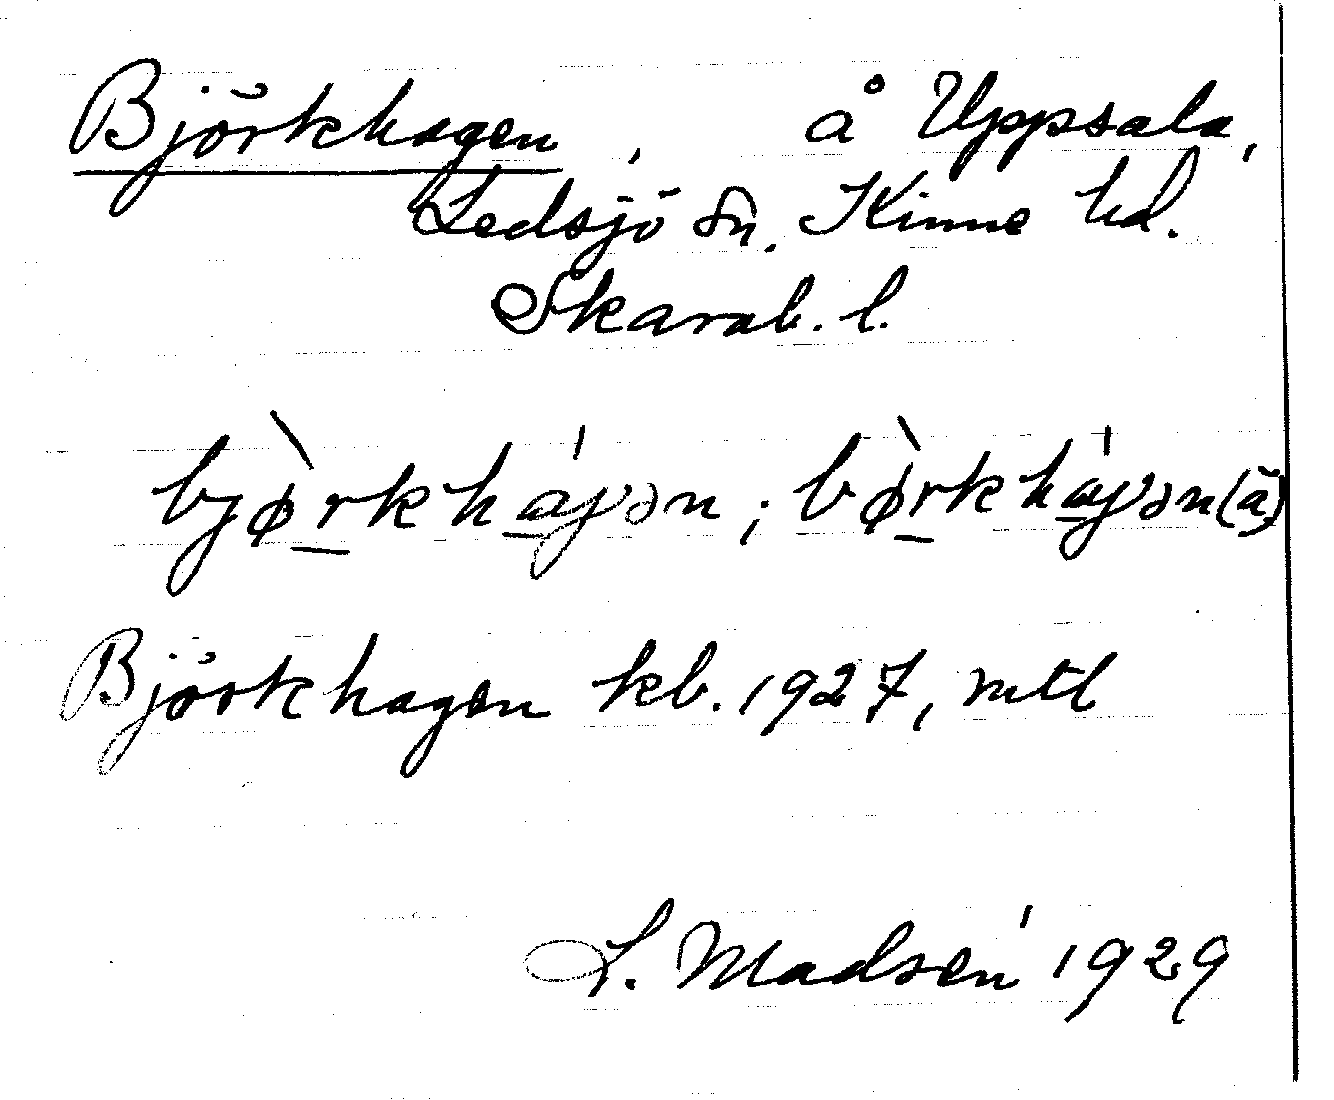 Björkhagen, å Uppsala,
Ledsjö sn. Kinne hd.
Skarab. l.
bjø̀rkháɣən; bø̀rkháɣən (ä)
Björkhagen kb. 1927, mtl
L. Madsén 1929